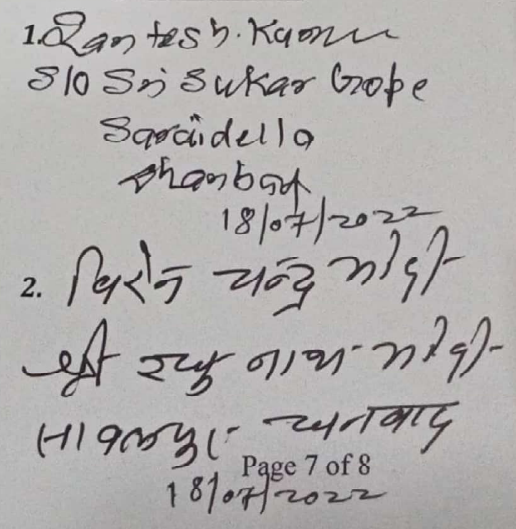 1. Santesh Kumar
S/O Sri Sukar Gope
Saraidella
Dhanbad
18/07/2022
2. चन्द्र मोदी
श्री नाथ मोदी
धनबाद
Page 7 of 8
18/07/2022